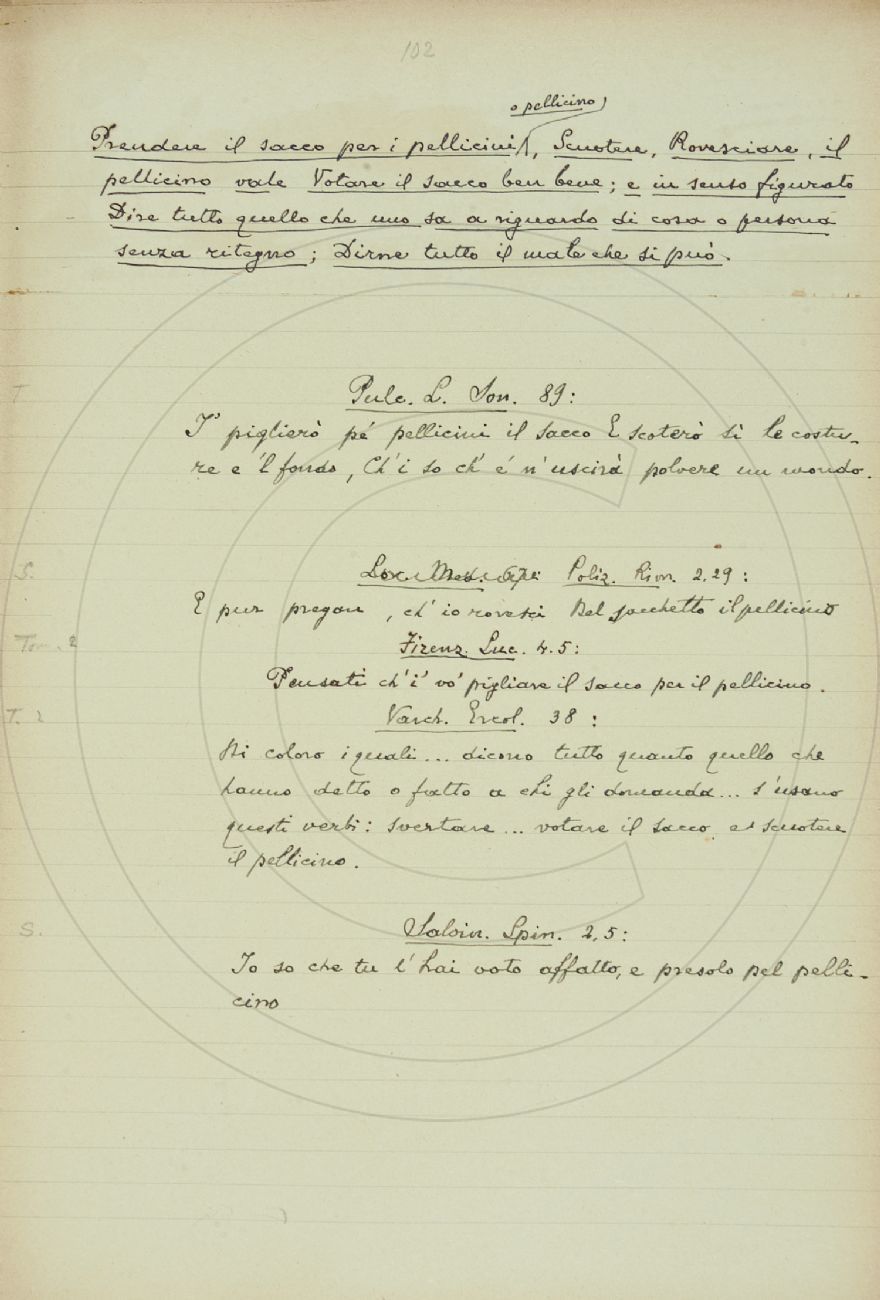 102
o pellicino,
Prendere il sacco per i pellicini, Scuotere, Rovesciare, il
pellicino vale Votare il sacco ben bene; e in senso figurato
Dire tutto quello che uno sa a riguardo di cosa o persona
senza ritegno; Dirne tutto il male che si può.
T
Pulc. L. Son. 89:
I' piglierò pé pellicini il sacco E scoterò sì le costu-
re e 'l fondo, Ch'i so ch' é n'uscirà polvere un mondo.
S.
Poliz. Rim. 2.29:
E pur pregan, ch' io rovesci Del sacchetto il pellicino
Tom. 2
Firenz. Luc. 4.5:
Pensati ch'i' vo' pigliare il sacco per il pellicino.
T. 2
Varch. Ercol. 38:
Di coloro i quali... dicono tutto quanto quello che
hanno detto o fatto a chi gli domanda... s'usano
questi verbi: svertare... votare il sacco, ed scuotere
il pellicino.
S.
Salvin. Spin. 2,5:
Io so che tu l'hai voto affatto, e presolo pel pelli-
cino